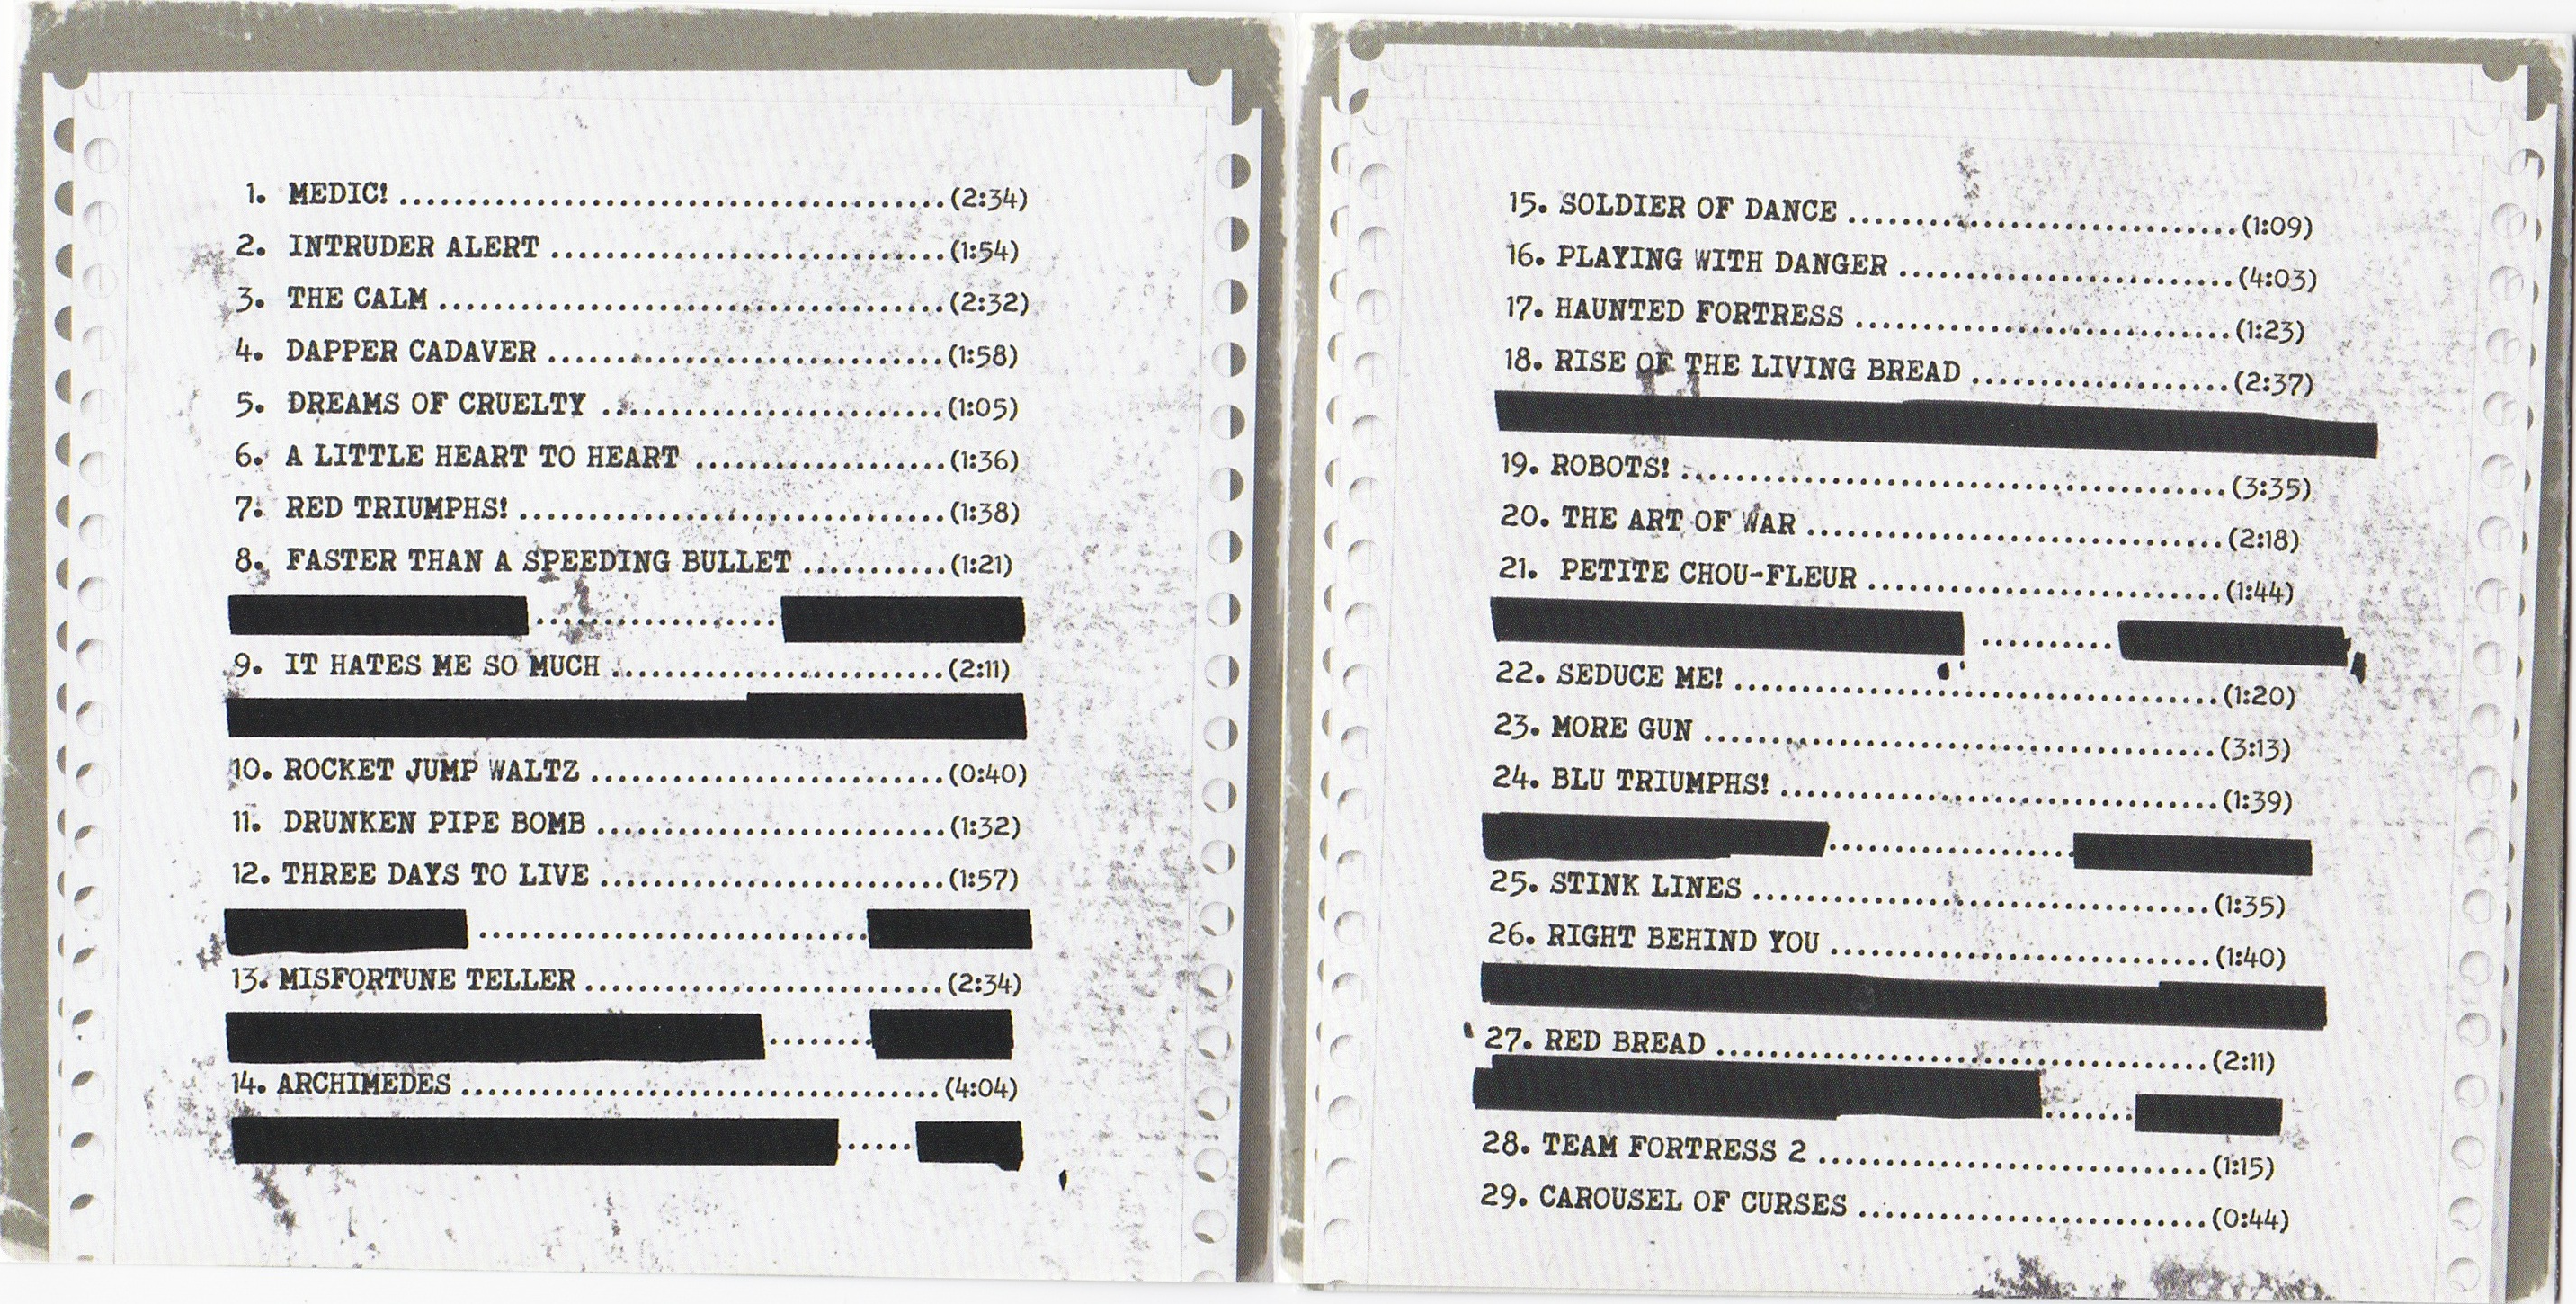 1. MEDIC! ........................................(2:34)
2. INTRUDER ALERT .............................(1:54)
3. THE CALM .....................................(2:32)
4. DAPPER CADAVER .............................(1:58)
5. DREAMS OF CRUELTY .........................(1:05)
6. A LITTLE HEART TO HEART ..................(1:36)
7. RED TRIUMPHS! ...............................(1:38)
8. FASTER THAN A SPEEDING BULLET ...........(1:21)
9. IT HATES ME SO MUCH ........................(2:11)
10. ROCKET JUMP WALTZ ..........................(0:40)
11. DRUNKEN PIPE BOMB ..........................(1:32)
12. THREE DAYS TO LIVE .........................(1:57)
13. MISFORTUNE TELLER ..........................(2:34)
14. ARCHIMEDES ...................................(4:04)
15. SOLDIER OF DANCE .............................(1:09)
16. PLAYING WITH DANGER .........................(4:03)
17. HAUNTED FORTRESS ............................(1:23)
18. RISE OF THE LIVING BREAD ...................(2:37)
19. ROBOTS! ........................................(3:35)
20. THE ART OF WAR ...............................(2:18)
21. PETITE CHOU-FLEUR ..........................(1:44)
22. SEDUCE ME! ....................................(1:20)
23. MORE GUN ......................................(3:13)
24. BLU TRIUMPHS! ................................(1:39)
25. STINK LINES ..................................(1:35)
26. RIGHT BEHIND YOU ............................(1:40)
27. RED BREAD ....................................(2:11)
28. TEAM FORTRESS 2 .............................(1:15)
29. CAROUSEL OF CURSES ..........................(0:44)